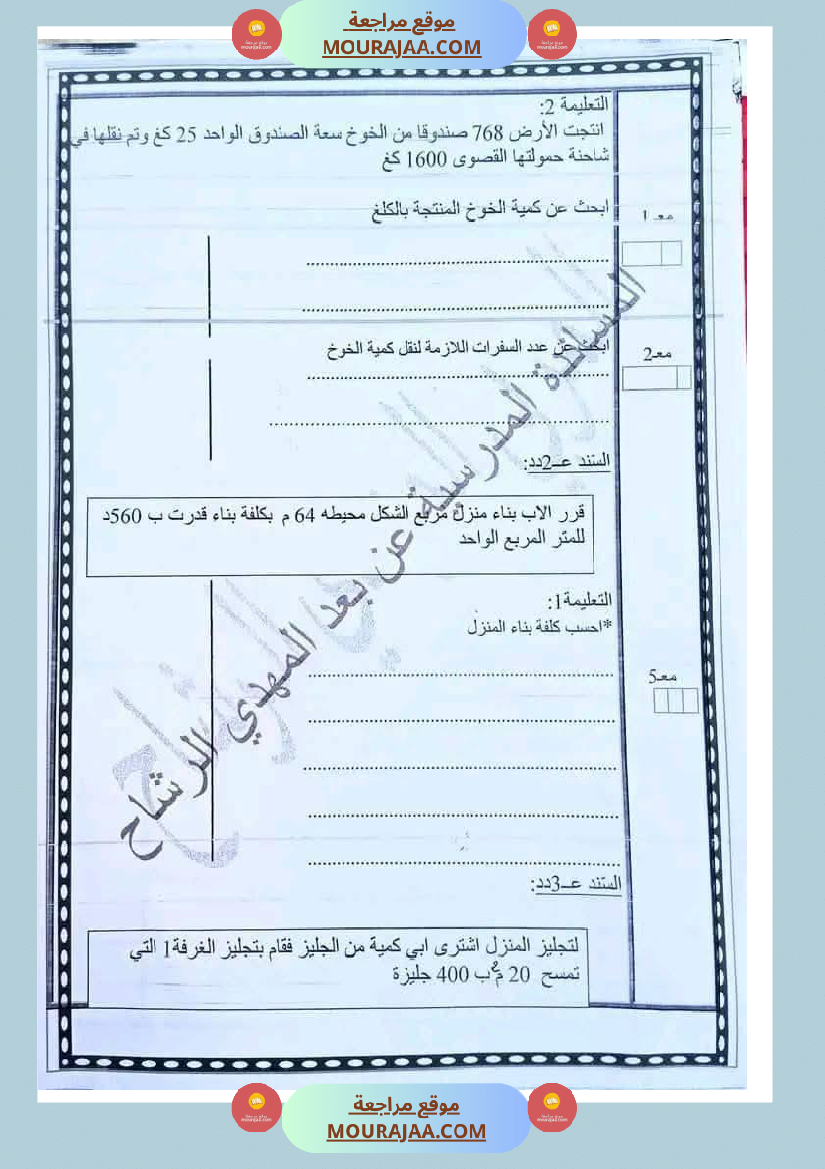 موقع مراجعة
MOURAJAA.COM
التعليمة 2:
انتجت الأرض 768 صندوقا من الخوخ سعة الصندوق الواحد 25 كغ وتم نقلها في
شاحنة حمولتها القصوى 1600 كغ
معـ 1
ابحث عن كمية الخوخ المنتجة بالكلغ
معـ2
ابحث عن عدد السفرات اللازمة لنقل كمية الخوخ
السند عــ2دد:
قرر الاب بناء منزل مربع الشكل محيطه 64 م بكلفة بناء قدرت ب 560د
للمتر المربع الواحد
التعليمة1:
*احسب كلفة بناء المنزل
معـ5
السند عــ3دد:
لتجليز المنزل اشترى ابي كمية من الجليز فقام بتجليز الغرفة1 التي
تمسح 20 م² ب 400 جليزة
المساندة المدرسية عن بعد المهدي الرشاح
موقع مراجعة
MOURAJAA.COM